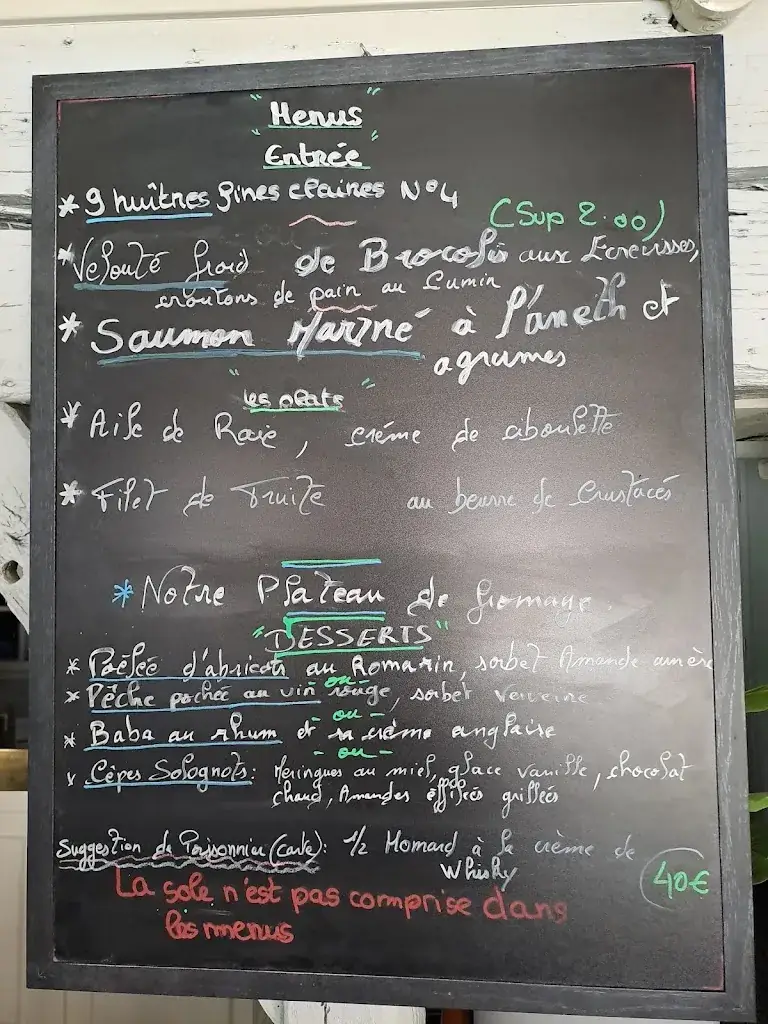 "Menus"
"Entrée"
* 9 huîtres fines claires N°4
(Sup 2.00)
* Velouté froid de Brocolis aux Ecrevisses,
croûtons de pain au Cumin
* Saumon Mariné à l'aneth et
agrumes
"Les plats"
* Aile de Raie, crème de ciboulette
* Filet de Truite au beurre de Crustacés
* Notre Plateau de fromage.
"DESSERTS"
* Poêlée d'abricots au Romarin, sorbet Amande amère
- ou -
* Pêche pochée au vin rouge, sorbet Verveine
- ou -
* Baba au rhum et sa crème anglaise
- ou -
* Cèpes Solognots: Meringues au miel, glace vanille, chocolat
chaud, Amandes effilées grillées
Suggestion du Poissonnier (carte): 1/2 Homard à la crème de
Whisky
40€
La sole n'est pas comprise dans
les menus